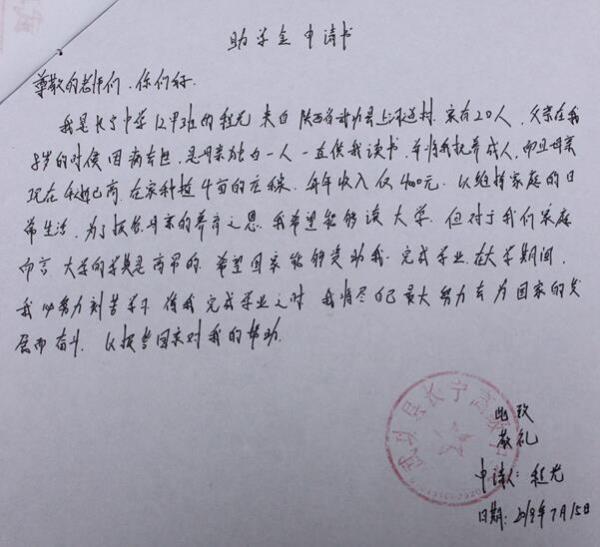 助学金申请书
尊敬的老师们，你们好。
我是长宁中学12级3班的程光 来自 陕西省武功县上永进村．家有2口人，父亲在我
8岁的时候因病去世，是母亲独自一人一直供我读书，并将我抚养成人，而且母亲
现在年纪已高．在家种植4亩的庄稼．每年收入仅400元．以维持家庭的日
常生活，为了报答母亲的养育之恩．我希望能够读大学．但对于我们家庭
而言 大学的学费是高昂的．希望国家能够资助我．完成学业．在大学期间，
我必努力刻苦学习 待我完成学业之时 我将尽自己最大努力去为国家的发
展而奋斗．以报答国家对我的帮助．
此致
敬礼
武功县长宁高级中学
申请人：程光
日期：2019年7月15日